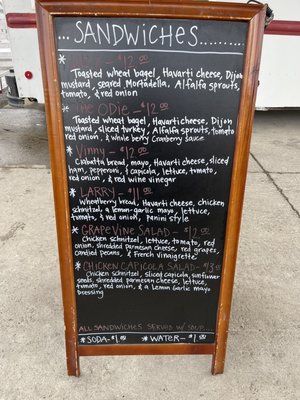 SANDWICHES
$12.00
Toasted wheat bagel, Havarti cheese, Dijon
mustard, seared Mortadella, Alfalfa sprouts,
tomato, and red onion
* THE ODIE - $12.00
Toasted wheat bagel, Havarti cheese, Dijon
mustard, sliced turkey, Alfalfa sprouts, tomato
red onion, & whole berry Cranberry sauce
* Vinny - $12.00
Ciabatta bread, mayo, Havarti cheese, sliced
ham, pepperoni, capicola, lettuce, tomato,
red onion, & red wine vinegar
* LARRY - $11.00
Wheatberry bread, Havarti cheese, chicken
schnitzel, a lemon-garlic mayo, lettuce,
tomato, & red onion, Panini style
* GRAPEVINE SALAD - $12
Chicken schnitzel, lettuce, tomato, red
onion, shredded parmesan cheese, red grapes,
candied pecans, & French Vinaigrette
* CHICKEN CAPICOLA SALAD - $13.00
Chicken schnitzel, sliced capicola, sunflower
seeds, shredded parmesan cheese, lettuce,
tomato, red onion, & a Lemon Garlic mayo
dressing
ALL SANDWICHES SERVED W/ SOUP
* SODA - $1.00 * WATER - $1.00